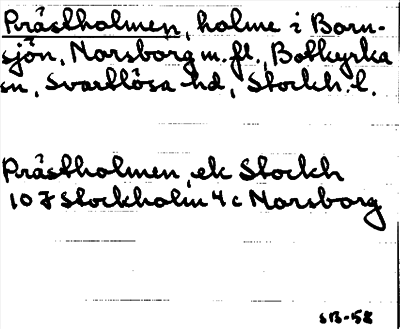 Prästholmen, holme i Born-
sjön, Norsborg m. fl., Botkyrka
sn, Svartlösa hd, Stockh. l.
Prästholmen, ek Stockh
10 I Stockholm 4 c Norsborg
SB-58